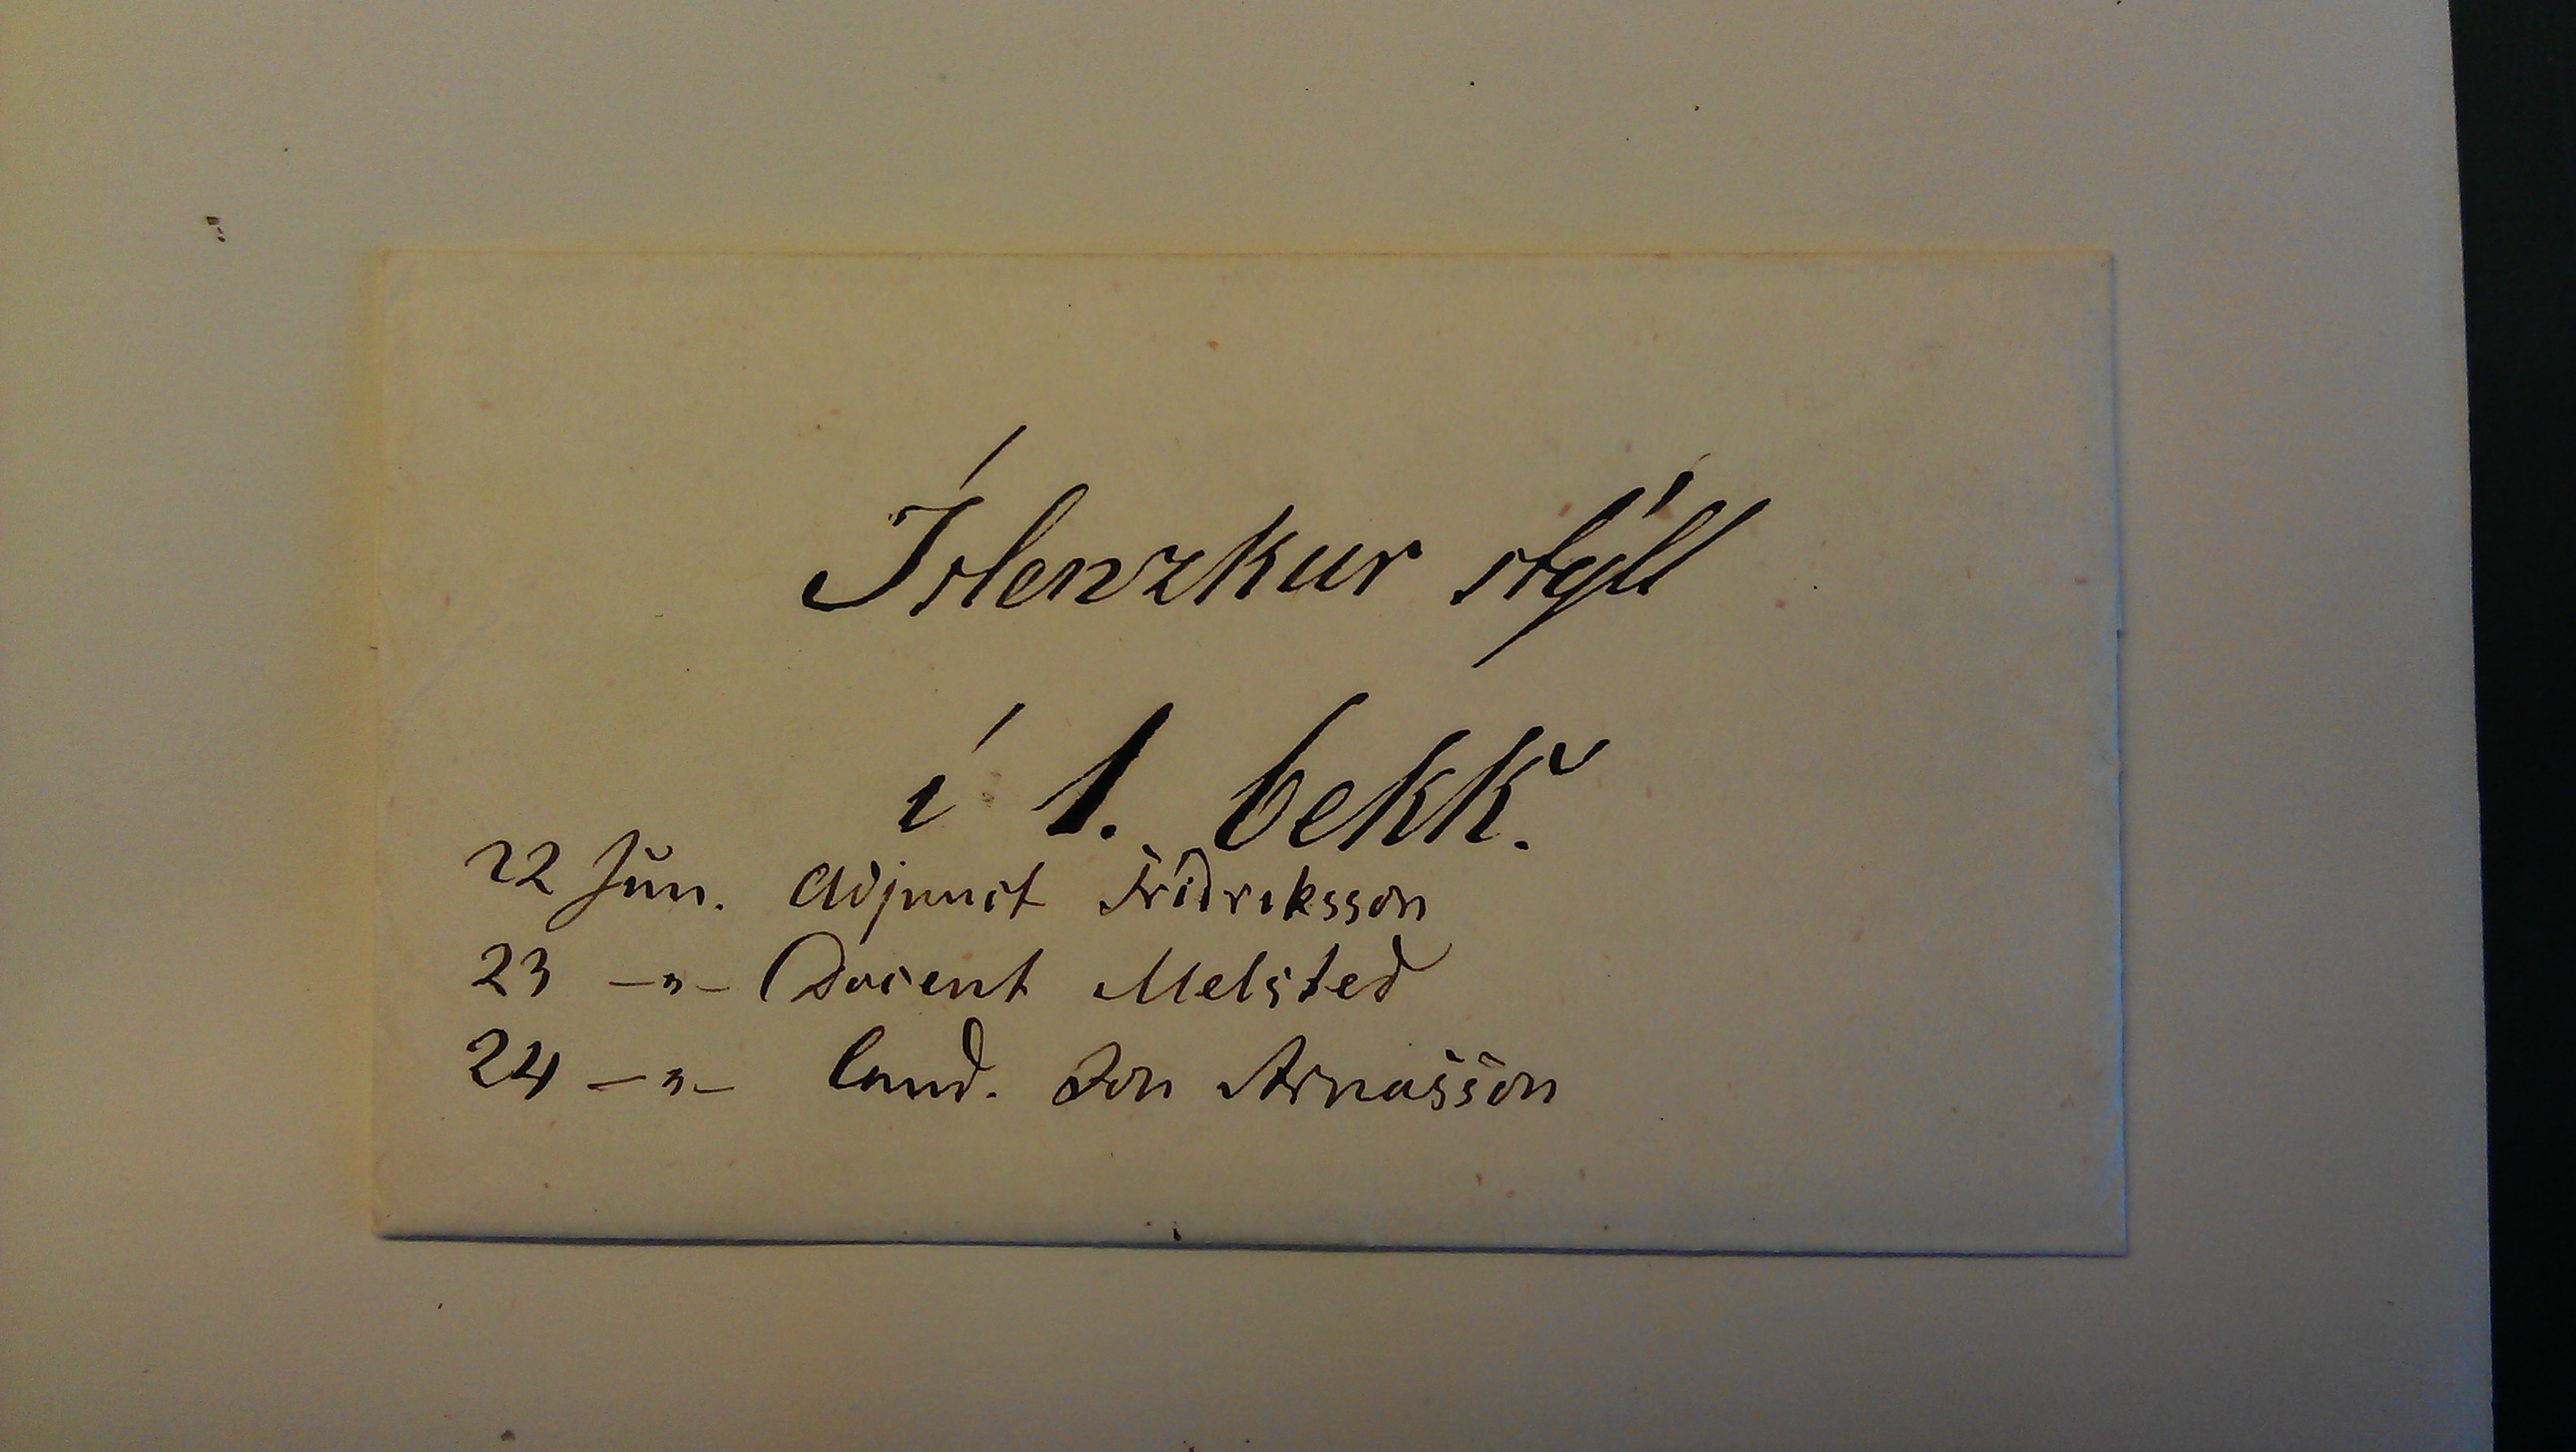 Íslenzkur stýll
í 1. bekk.
22 Jun. Adjunct Fridriksson
23 —„— Docent Melsted
24 —„— Cand. Jon Arnasson